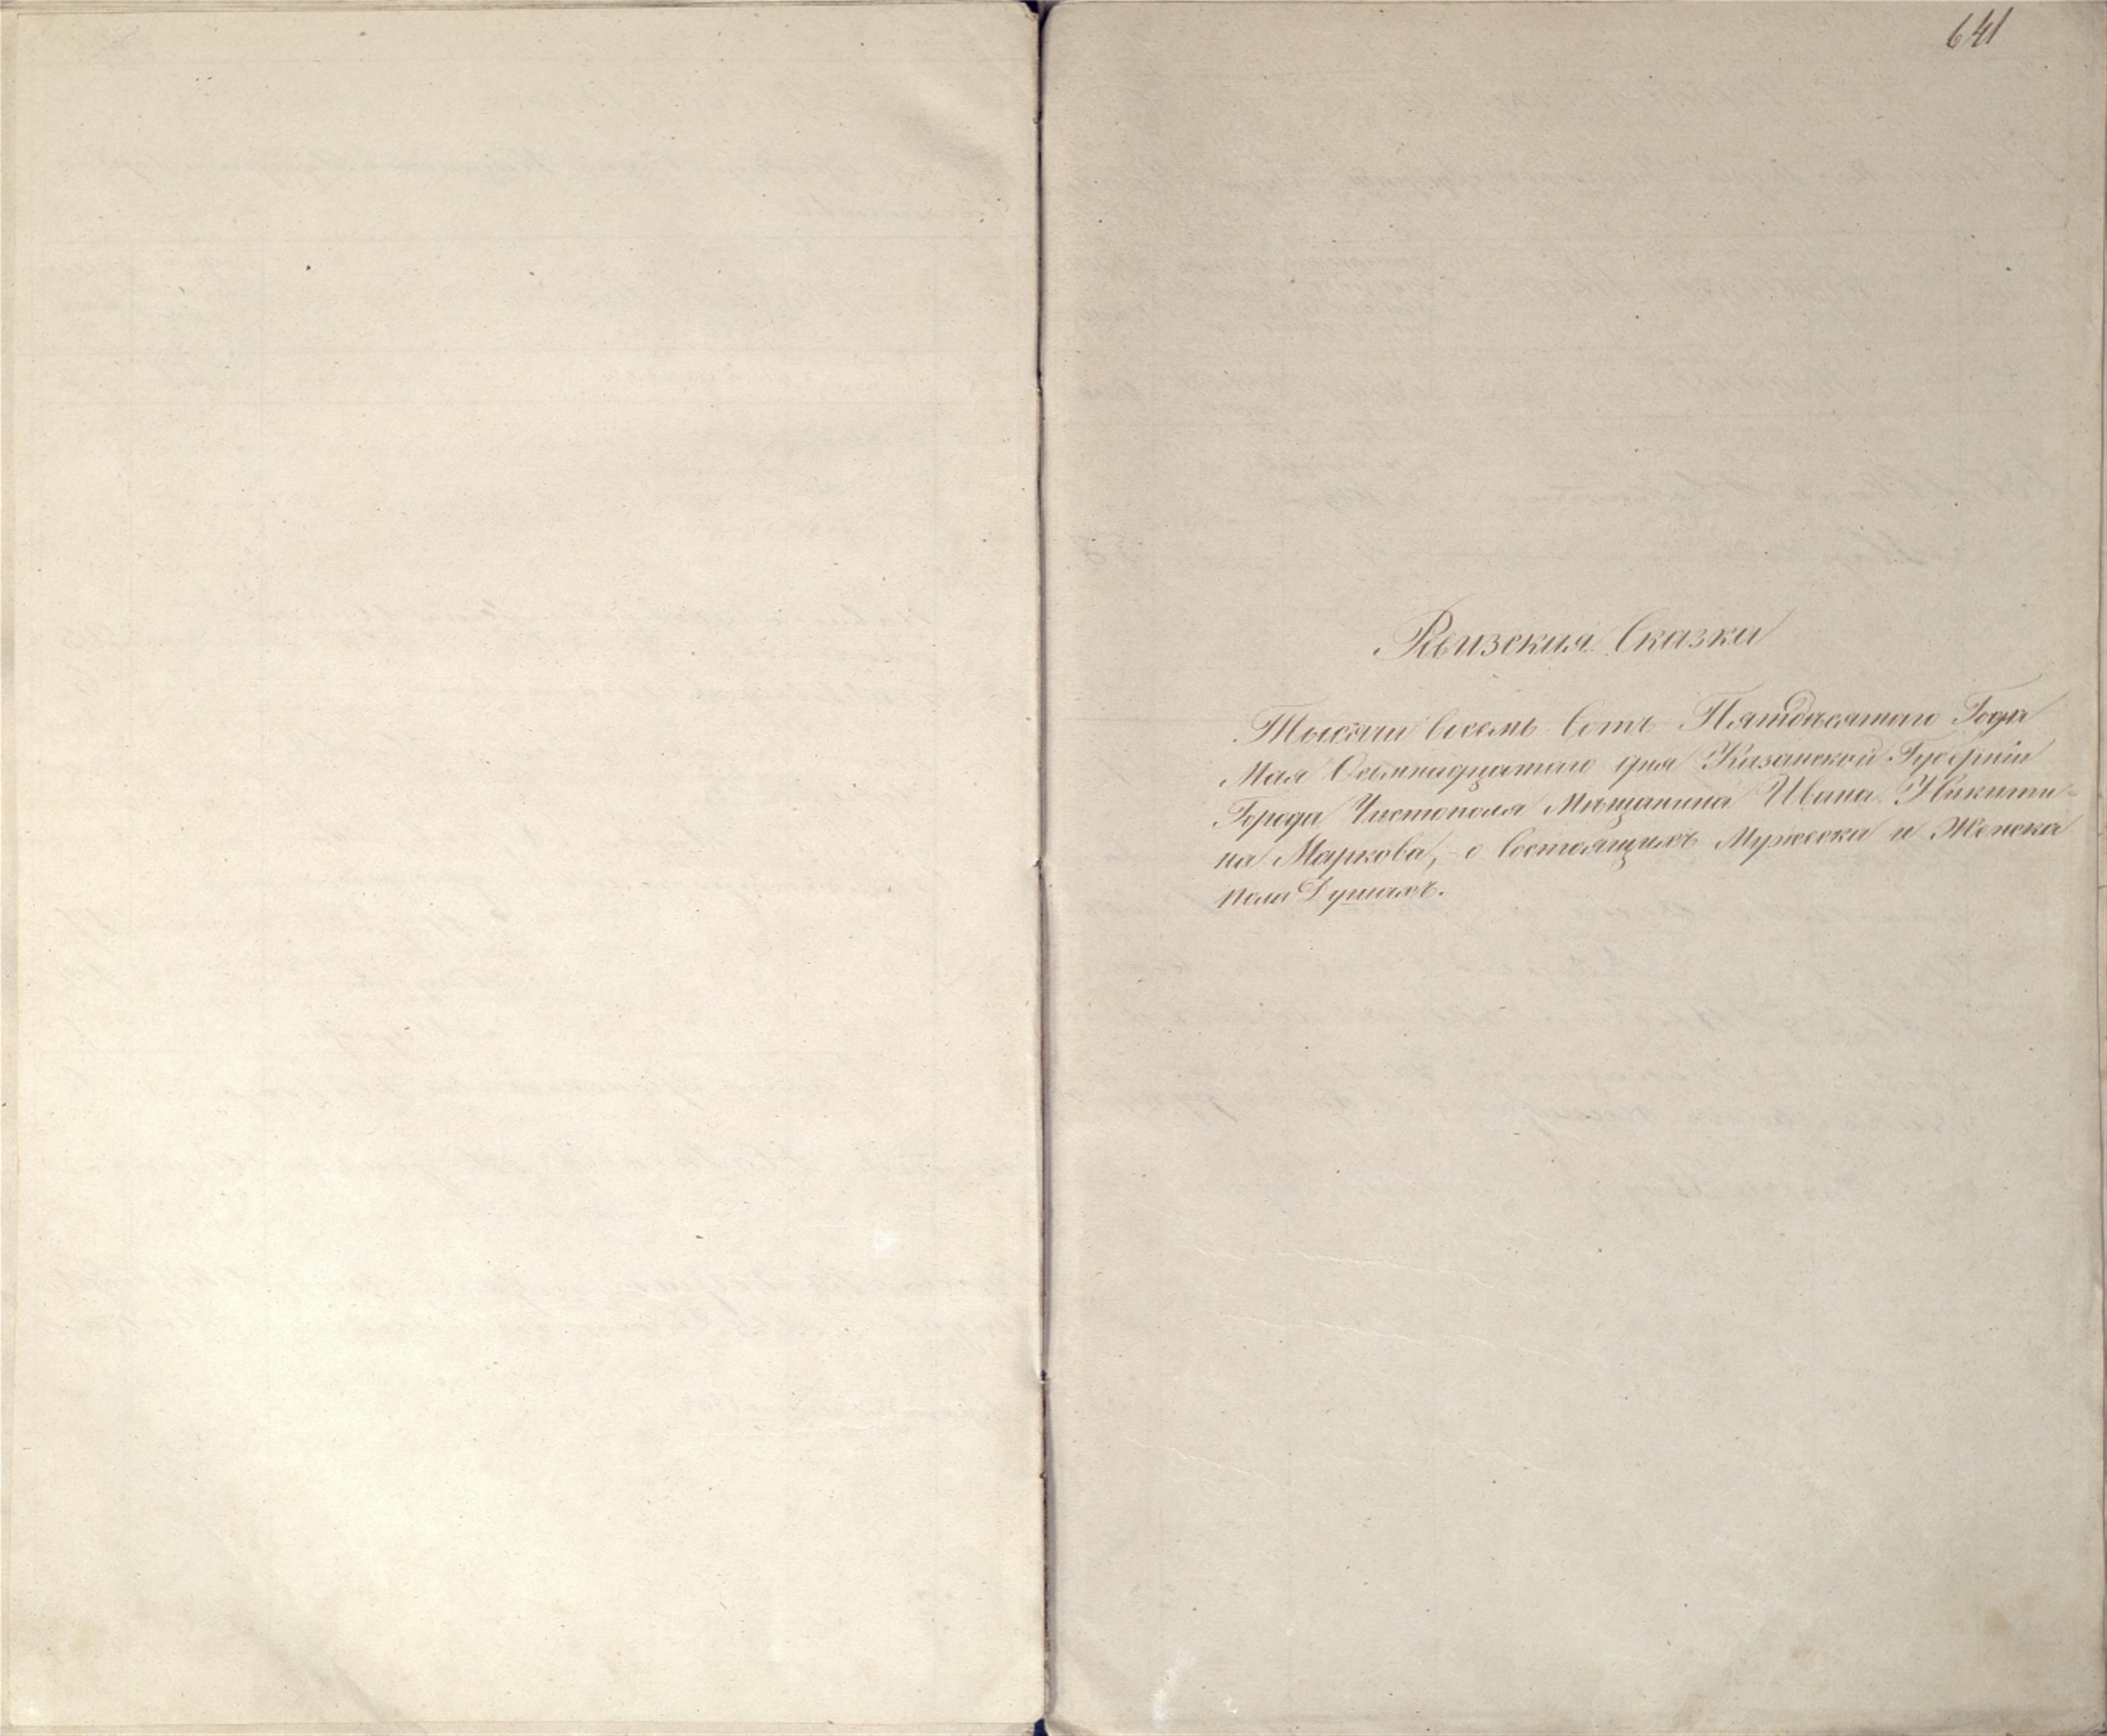 641
Ревизская Сказка
Тысяча восемь сотъ Пятдесятаго Года
Мая Осьмнадцатаго дня Казанской Губерніи
Города Чистополя Мѣщанина Ивана Никити-
на Маркова, о состоящихъ Мужеска и Женска
пола Душахъ.